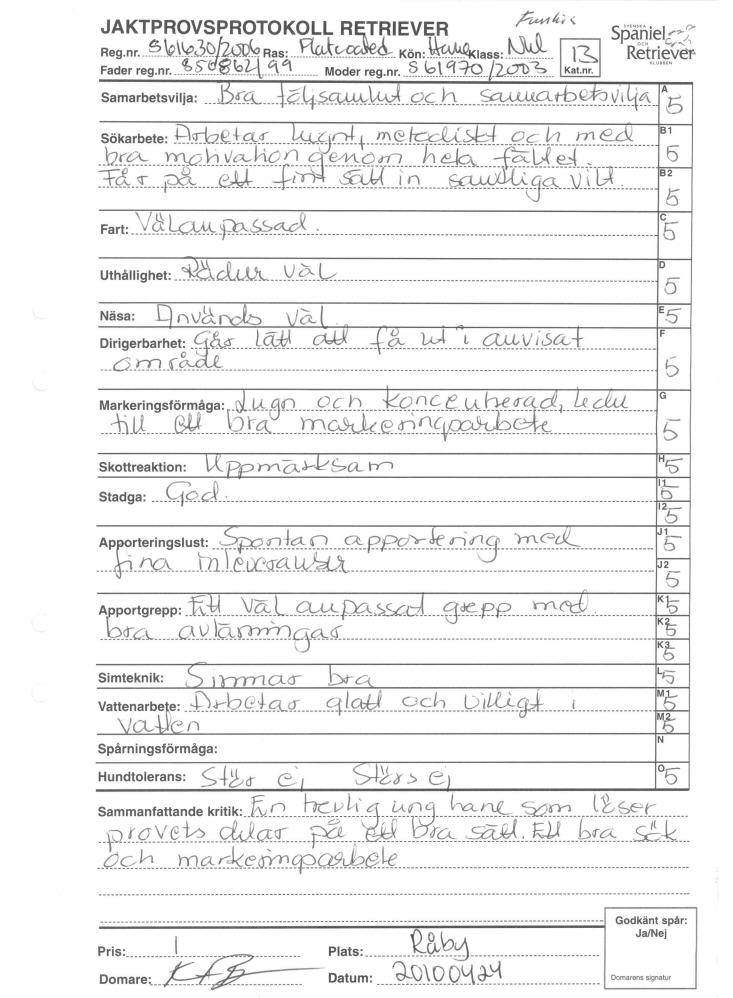 Funkis
JAKTPROVSPROTOKOLL RETRIEVER
SVENSKA
Spaniel
OCH
Retriever
KLUBBEN
Reg.nr. S61630/2006 Ras: Flatcoated Kön: Hane Klass: Nkl 13
Fader reg.nr. S50862/99 Moder reg.nr. S61970/2003 Kat.nr.
Samarbetsvilja: Bra följsamhet och samarbetsvilja A 5
Sökarbete: Arbetar lugnt, metodiskt och med B1 5
bra motivation genom hela fältet.
Får på ett fint sätt in samtliga vilt. B2 5
Fart: Välanpassad. C 5
Uthållighet: Räcker väl D 5
Näsa: Används väl E 5
Dirigerbarhet: Går lätt att få ut i anvisat F 5
område
Markeringsförmåga: Lugn och koncentrerad, leder G 5
till ett bra markeringsarbete
Skottreaktion: Uppmärksam H 5
Stadga: God. I1 5
I2 5
Apporteringslust: Spontan apportering med J1 5
fina inleveranser J2 5
Apportgrepp: Ett väl anpassat grepp med K1 5
bra avlämningar K2 5
K3 5
Simteknik: Simmar bra L 5
Vattenarbete: Arbetar glatt och villigt i M1 5
vatten M2 5
Spårningsförmåga: N
Hundtolerans: Stör ej Störs ej O 5
Sammanfattande kritik: En trevlig ung hane som löser
provets delar på ett bra sätt. Ett bra sök
och markeringsarbete
Godkänt spår:
Ja/Nej
Pris: 1 Plats: Råby
Domare: Datum: 20100424
Domarens signatur